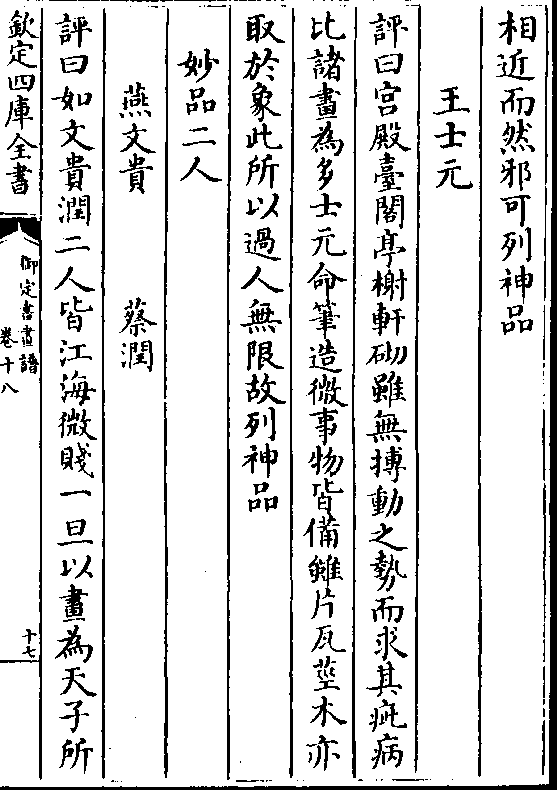 相近而然邪可列神品
王士元
評曰宫殿臺閣亭榭軒砌雖無搏動之勢而求其疵病
比諸畫為多士元命筆造微事物皆備雖片瓦莖木亦
取於象此所以過人無限故列神品
妙品二人
燕文貴 蔡潤
評曰如文貴潤二人皆江海微賤一旦以畫為天子所
欽定四庫全書
御定書畫譜
卷十八
十七